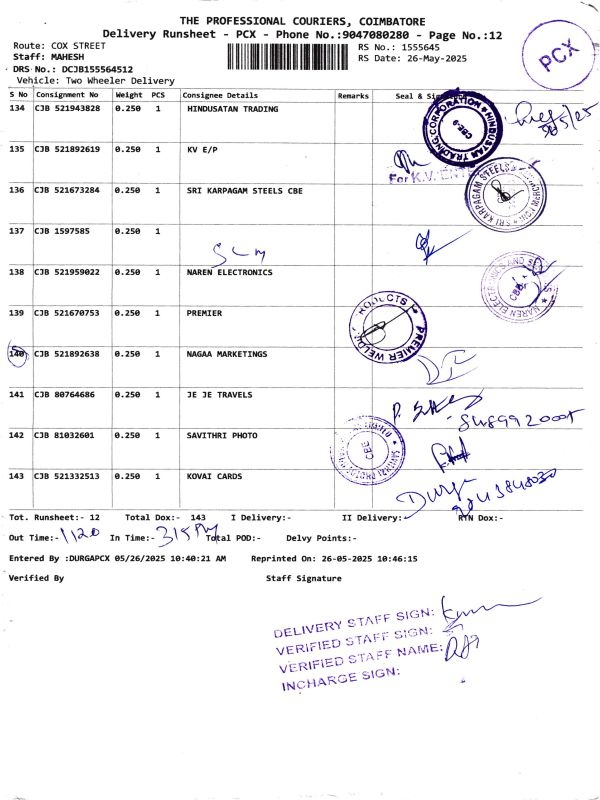 THE PROFESSIONAL COURIERS, COIMBATORE
Delivery Runsheet - PCX - Phone No.:9047080280 - Page No.:12
Route: COX STREET
RS No.: 1555645
Staff: MAHESH
RS Date: 26-May-2025
DRS No.: DCJB155564512
Vehicle: Two Wheeler Delivery
PCX
S No Consignment No Weight PCS Consignee Details Remarks Seal &
134 CJB 521943828 0.250 1 HINDUSATAN TRADING
HINDUSTAN TRADING CORPORATION CBE-9
135 CJB 521892619 0.250 1 KV E/P
For K.V.
136 CJB 521673284 0.250 1 SRI KARPAGAM STEELS CBE
SRI KARPAGAM STEELS
137 CJB 1597585 0.250 1
138 CJB 521959022 0.250 1 NAREN ELECTRONICS
NAREN ELECTRONICS AND CBE
139 CJB 521670753 0.250 1 PREMIER
PREMIER WELDING PRODUCTS
140 CJB 521892638 0.250 1 NAGAA MARKETINGS
141 CJB 80764686 0.250 1 JE JE TRAVELS
142 CJB 81032601 0.250 1 SAVITHRI PHOTO
CBE
143 CJB 521332513 0.250 1 KOVAI CARDS
Durga
Tot. Runsheet:- 12 Total Dox:- 143 I Delivery:- II Delivery:- RTN Dox:-
Out Time:- 1120 In Time:- 315 PM Total POD:- Delvy Points:-
Entered By :DURGAPCX 05/26/2025 10:40:21 AM Reprinted On: 26-05-2025 10:46:15
Verified By Staff Signature
DELIVERY STAFF SIGN:
VERIFIED STAFF SIGN:
VERIFIED STAFF NAME:
INCHARGE SIGN: